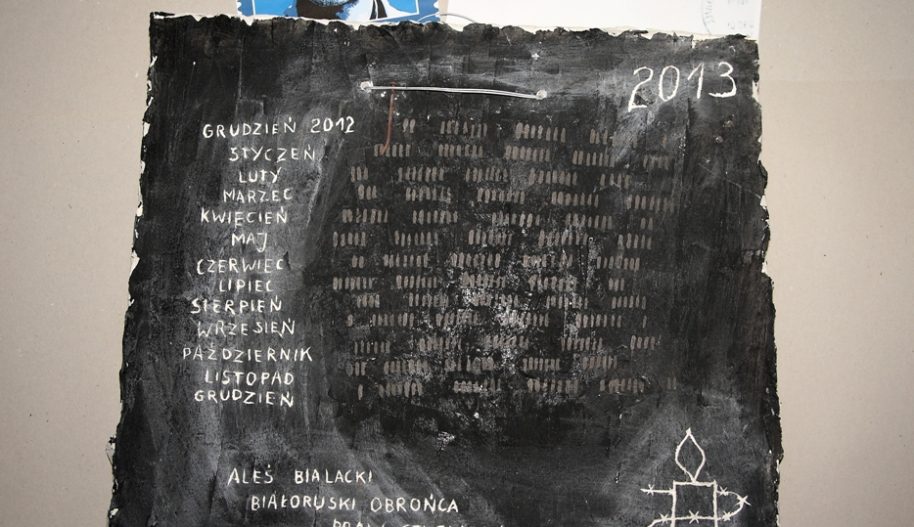 2013
GRUDZIEŃ 2012
STYCZEŃ
LUTY
MARZEC
KWIĘCIEŃ
MAJ
CZERWIEC
LIPIEC
SIERPIEŃ
WRZESIEŃ
PAŹDZIERNIK
LISTOPAD
GRUDZIEŃ
ALEŚ BIALACKI
BIAŁORUSKI OBROŃCA